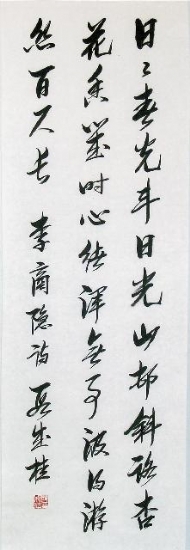 日日春光斗日光山城斜路杏
花香几时心绪浑无事得及游
丝百尺长 李商隐诗 段成桂